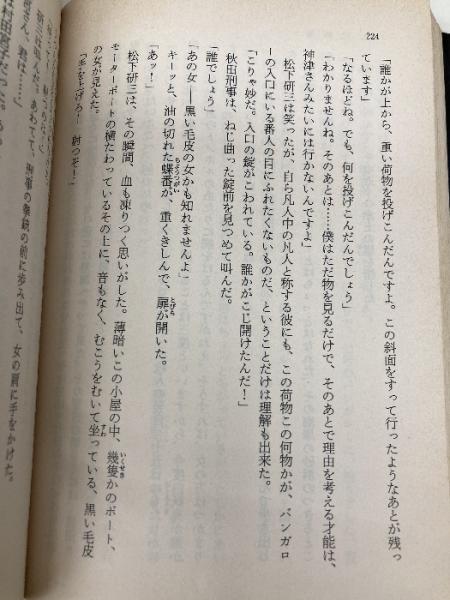 224
「誰かが上から、重い荷物を投げこんだんですよ。この斜面をすって行ったようなあとが残っ
ています」
「なるほどね。でも、何を投げこんだんでしょう」
「わかりませんね。そのあとは……僕はただ物を見るだけで、そのあとで理由を考える才能は、
神津さんみたいには行かないんですよ」
松下研三は笑ったが、自ら凡人中の凡人と称する彼にも、この荷物この何物かが、バンガロ
ーの入口にいる番人の目にふれたくないものだ、ということだけは理解も出来た。
「こりゃ妙だ。入口の錠がこわれている。誰かがこじ開けたんだ！」
秋田刑事は、ねじ曲った錠前を見つめて叫んだ。
「誰でしょう」
「あの女――黒い毛皮の女かも知れませんよ」
キーッと、油の切れた蝶番が、重くきしんで、扉が開いた。
「あッ！」
松下研三は、その瞬間、血も凍りつく思いがした。薄暗いこの小屋の中、幾隻かのボート、
モーターボートの横たわっているその上に、音もなく、むこうをむいて坐っている、黒い毛皮
の女が見えた。
「手を上げろ！　射つぞ！」
刑事の拳銃の前に歩み出て、女の肩に手をかけた。